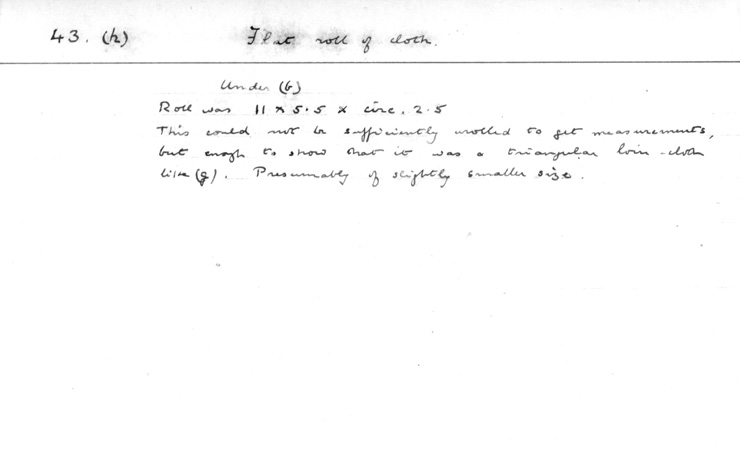 43. (h) Flat roll of cloth.
Under (b)
Roll was 11 x 5.5 x circ. 2.5
This could not be sufficiently unrolled to get measurements,
but enough to show that it was a triangular loin-cloth
like (g). Presumably of slightly smaller size.